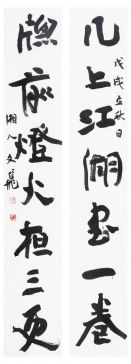 几上江湖書一卷
戊戌立秋日
牕前燈火夜三更
湘人文龍